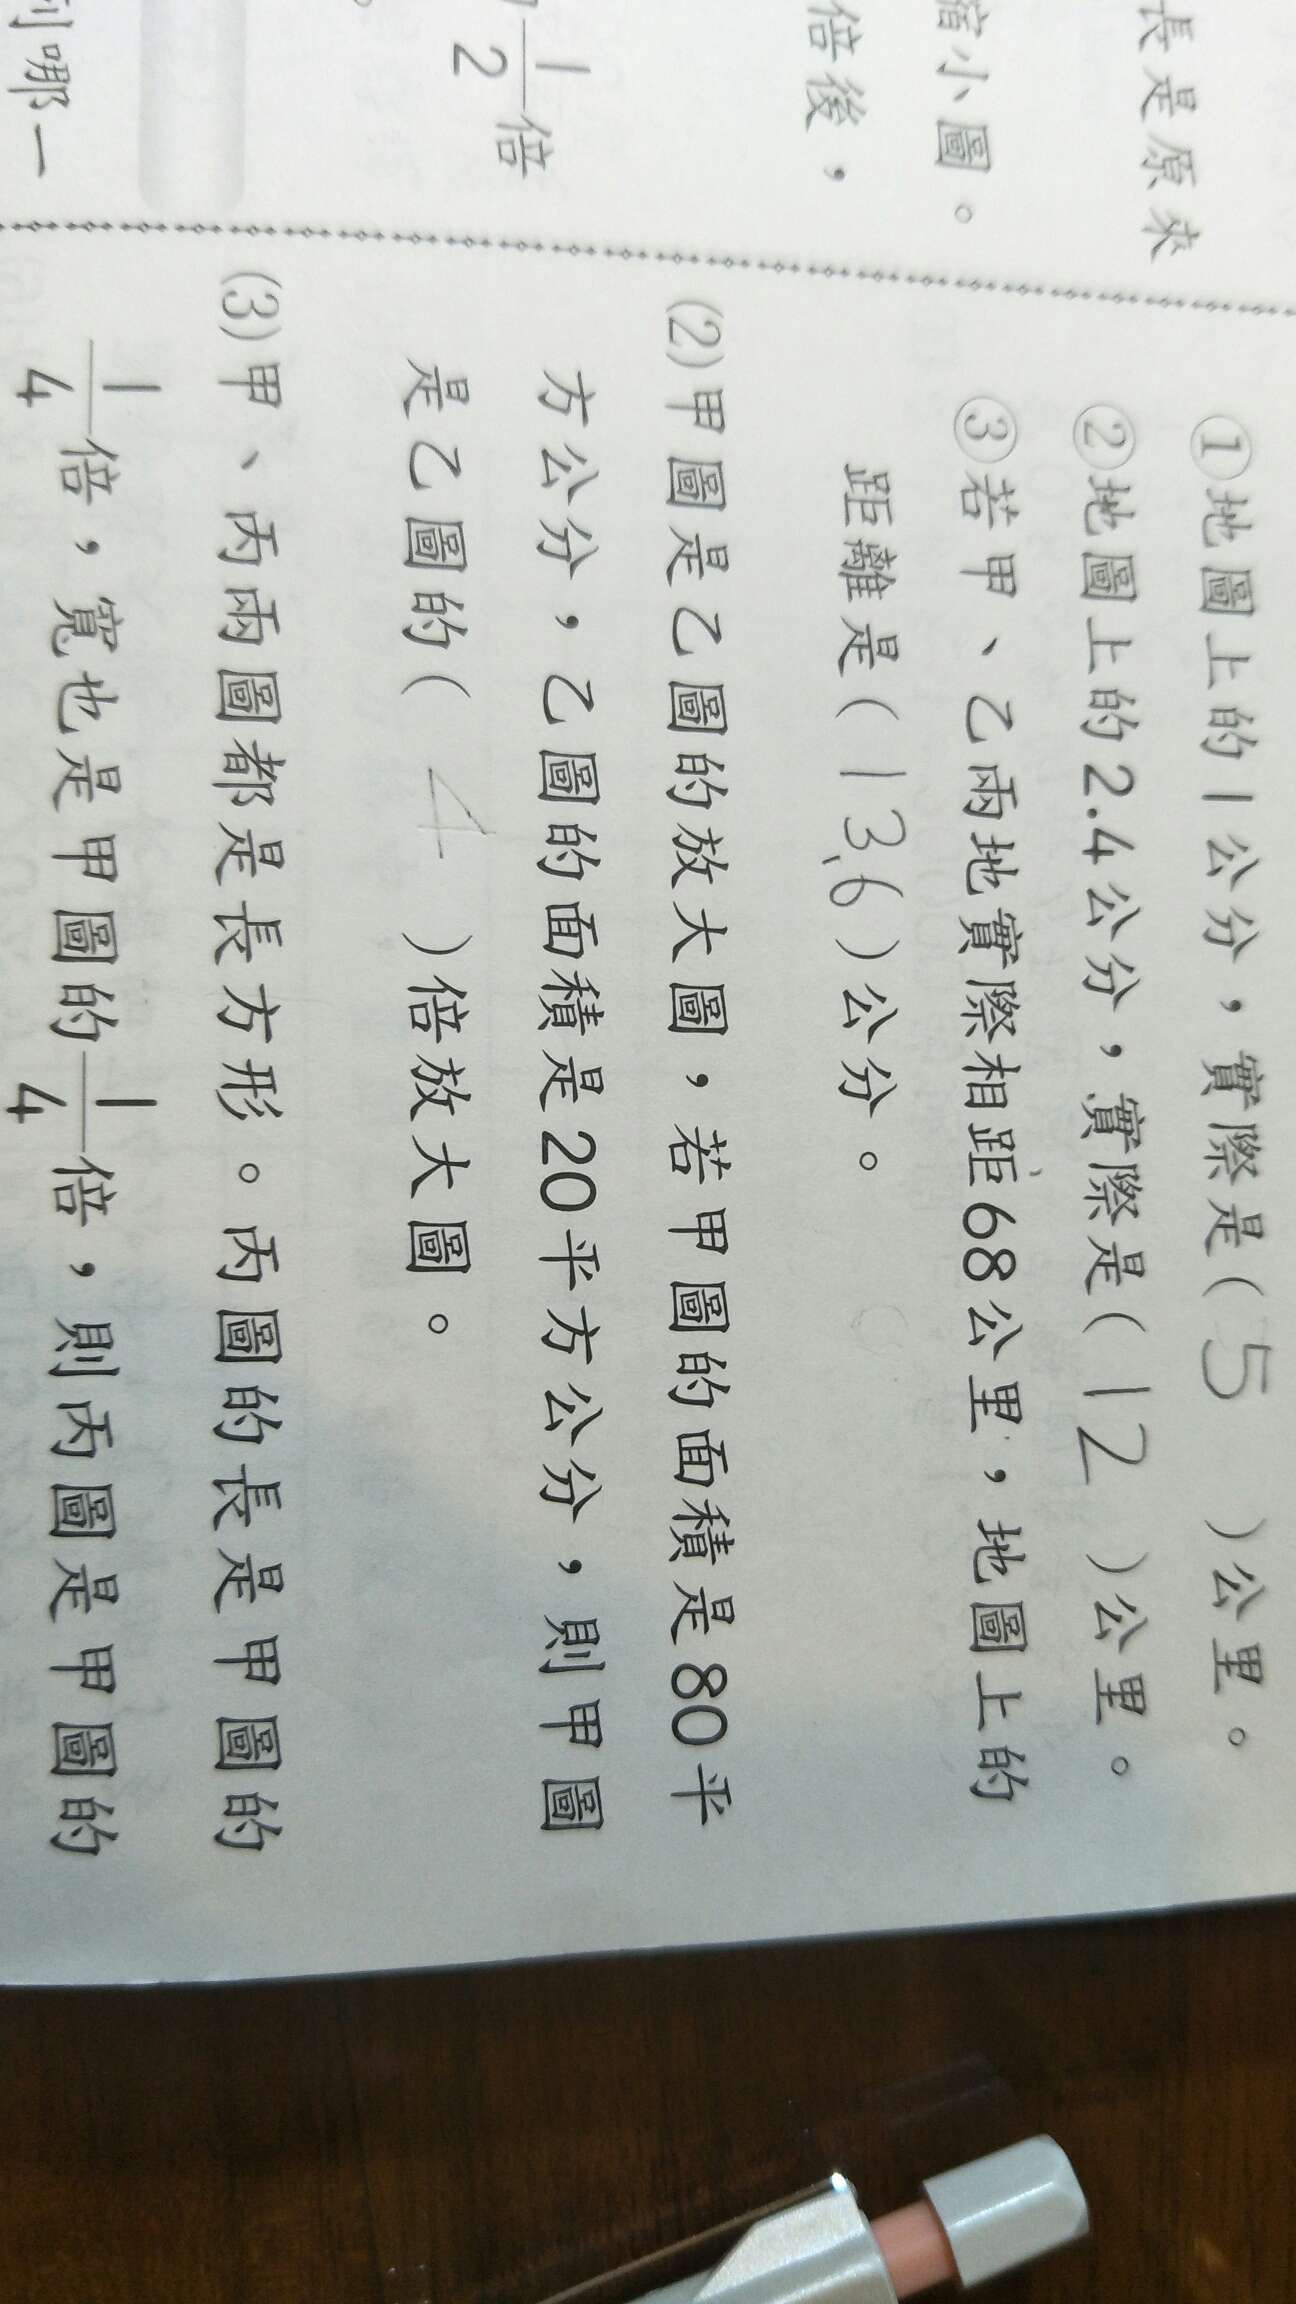 長是原來
縮小圖。
倍後，
1/2倍
到哪一
①地圖上的1公分，實際是( 5 )公里。
②地圖上的2.4公分，實際是( 12 )公里。
③若甲、乙兩地實際相距68公里，地圖上的
距離是( 13.6 )公分。
(2)甲圖是乙圖的放大圖，若甲圖的面積是80平
方公分，乙圖的面積是20平方公分，則甲圖
是乙圖的( 4 )倍放大圖。
(3)甲、丙兩圖都是長方形。丙圖的長是甲圖的
1/4倍，寬也是甲圖的1/4倍，則丙圖是甲圖的